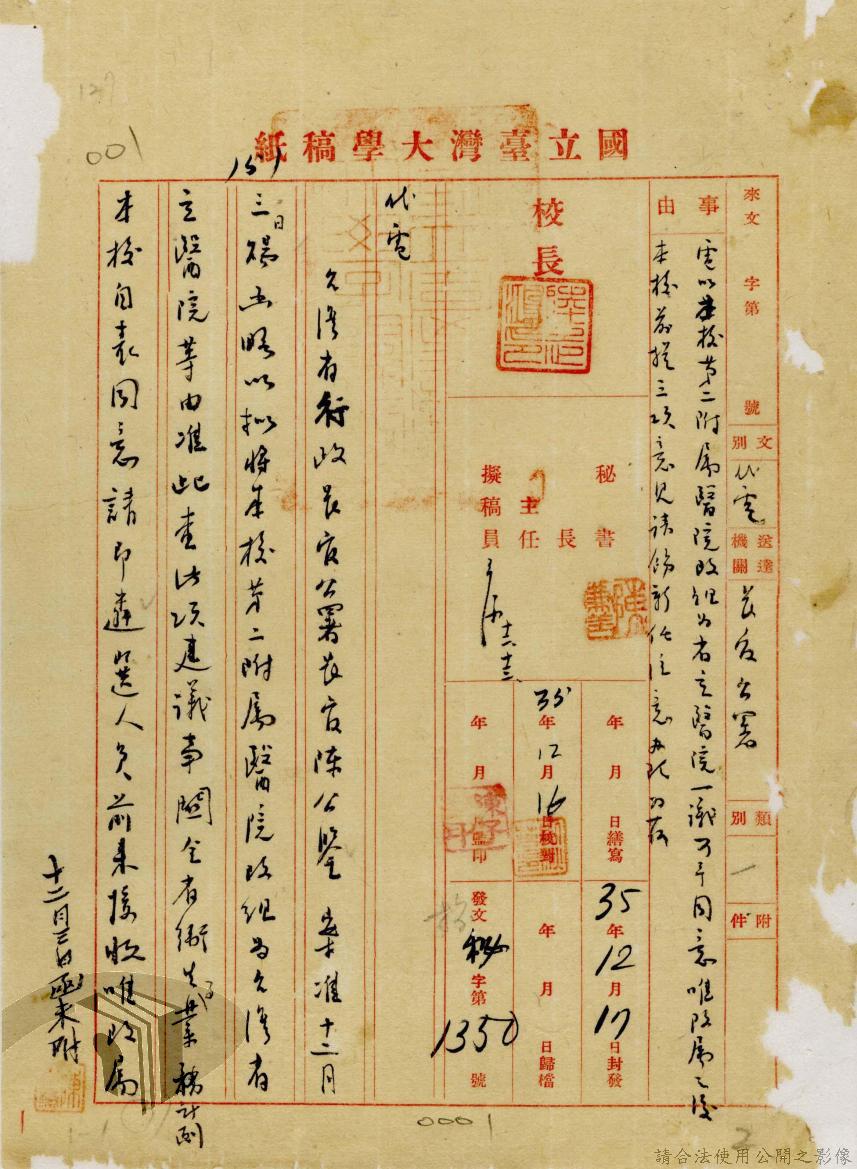 國立臺灣大學稿紙
001
來文 字第 號
文別 代電
送達機關 長官公署
類別
附件
事由
電以本校第二附屬醫院改組為省立醫院一議可予同意唯改屬之後
本校前提三項意見請飭新任注意辦理由
校長
秘書
主任
秘書長
擬稿員
年 月 日繕寫
35年12月16日校對
年 月 日監印
35年12月17日封發
年 月 日歸檔
發文 秘 字第 1350 號
代電
臺灣省行政長官公署長官陳公鑒 案准十二月
三日 函略以擬將本校第二附屬醫院改組為臺灣省
立醫院等由准此查此項建議事關全省衛生業務計劃
本校自表同意請即遴選人員前來接收唯改屬
十二月三日函未附
0001
2
請合法使用公開之影像